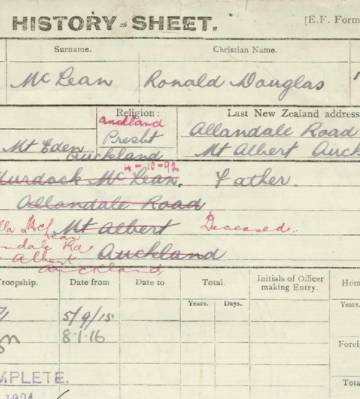 HISTORY-SHEET.
[E.F. Form
Surname.
Christian Name.
McLean Ronald Douglas
Religion:
Last New Zealand address
auckland
Presbt
Allandale Road
Mt Eden
Auckland
Mt Albert Auck
4-10-92
Murdock McLean. Father
Allandale Road
Mt Albert Deceased.
dale Rd
Albert
Auckland
auckland
Troopship.
Date from
Date to
Total.
Initials of Officer
making Entry.
Hom
Years. Days.
Years.
5/9/15
8.1.16
Foreig
MPLETE.